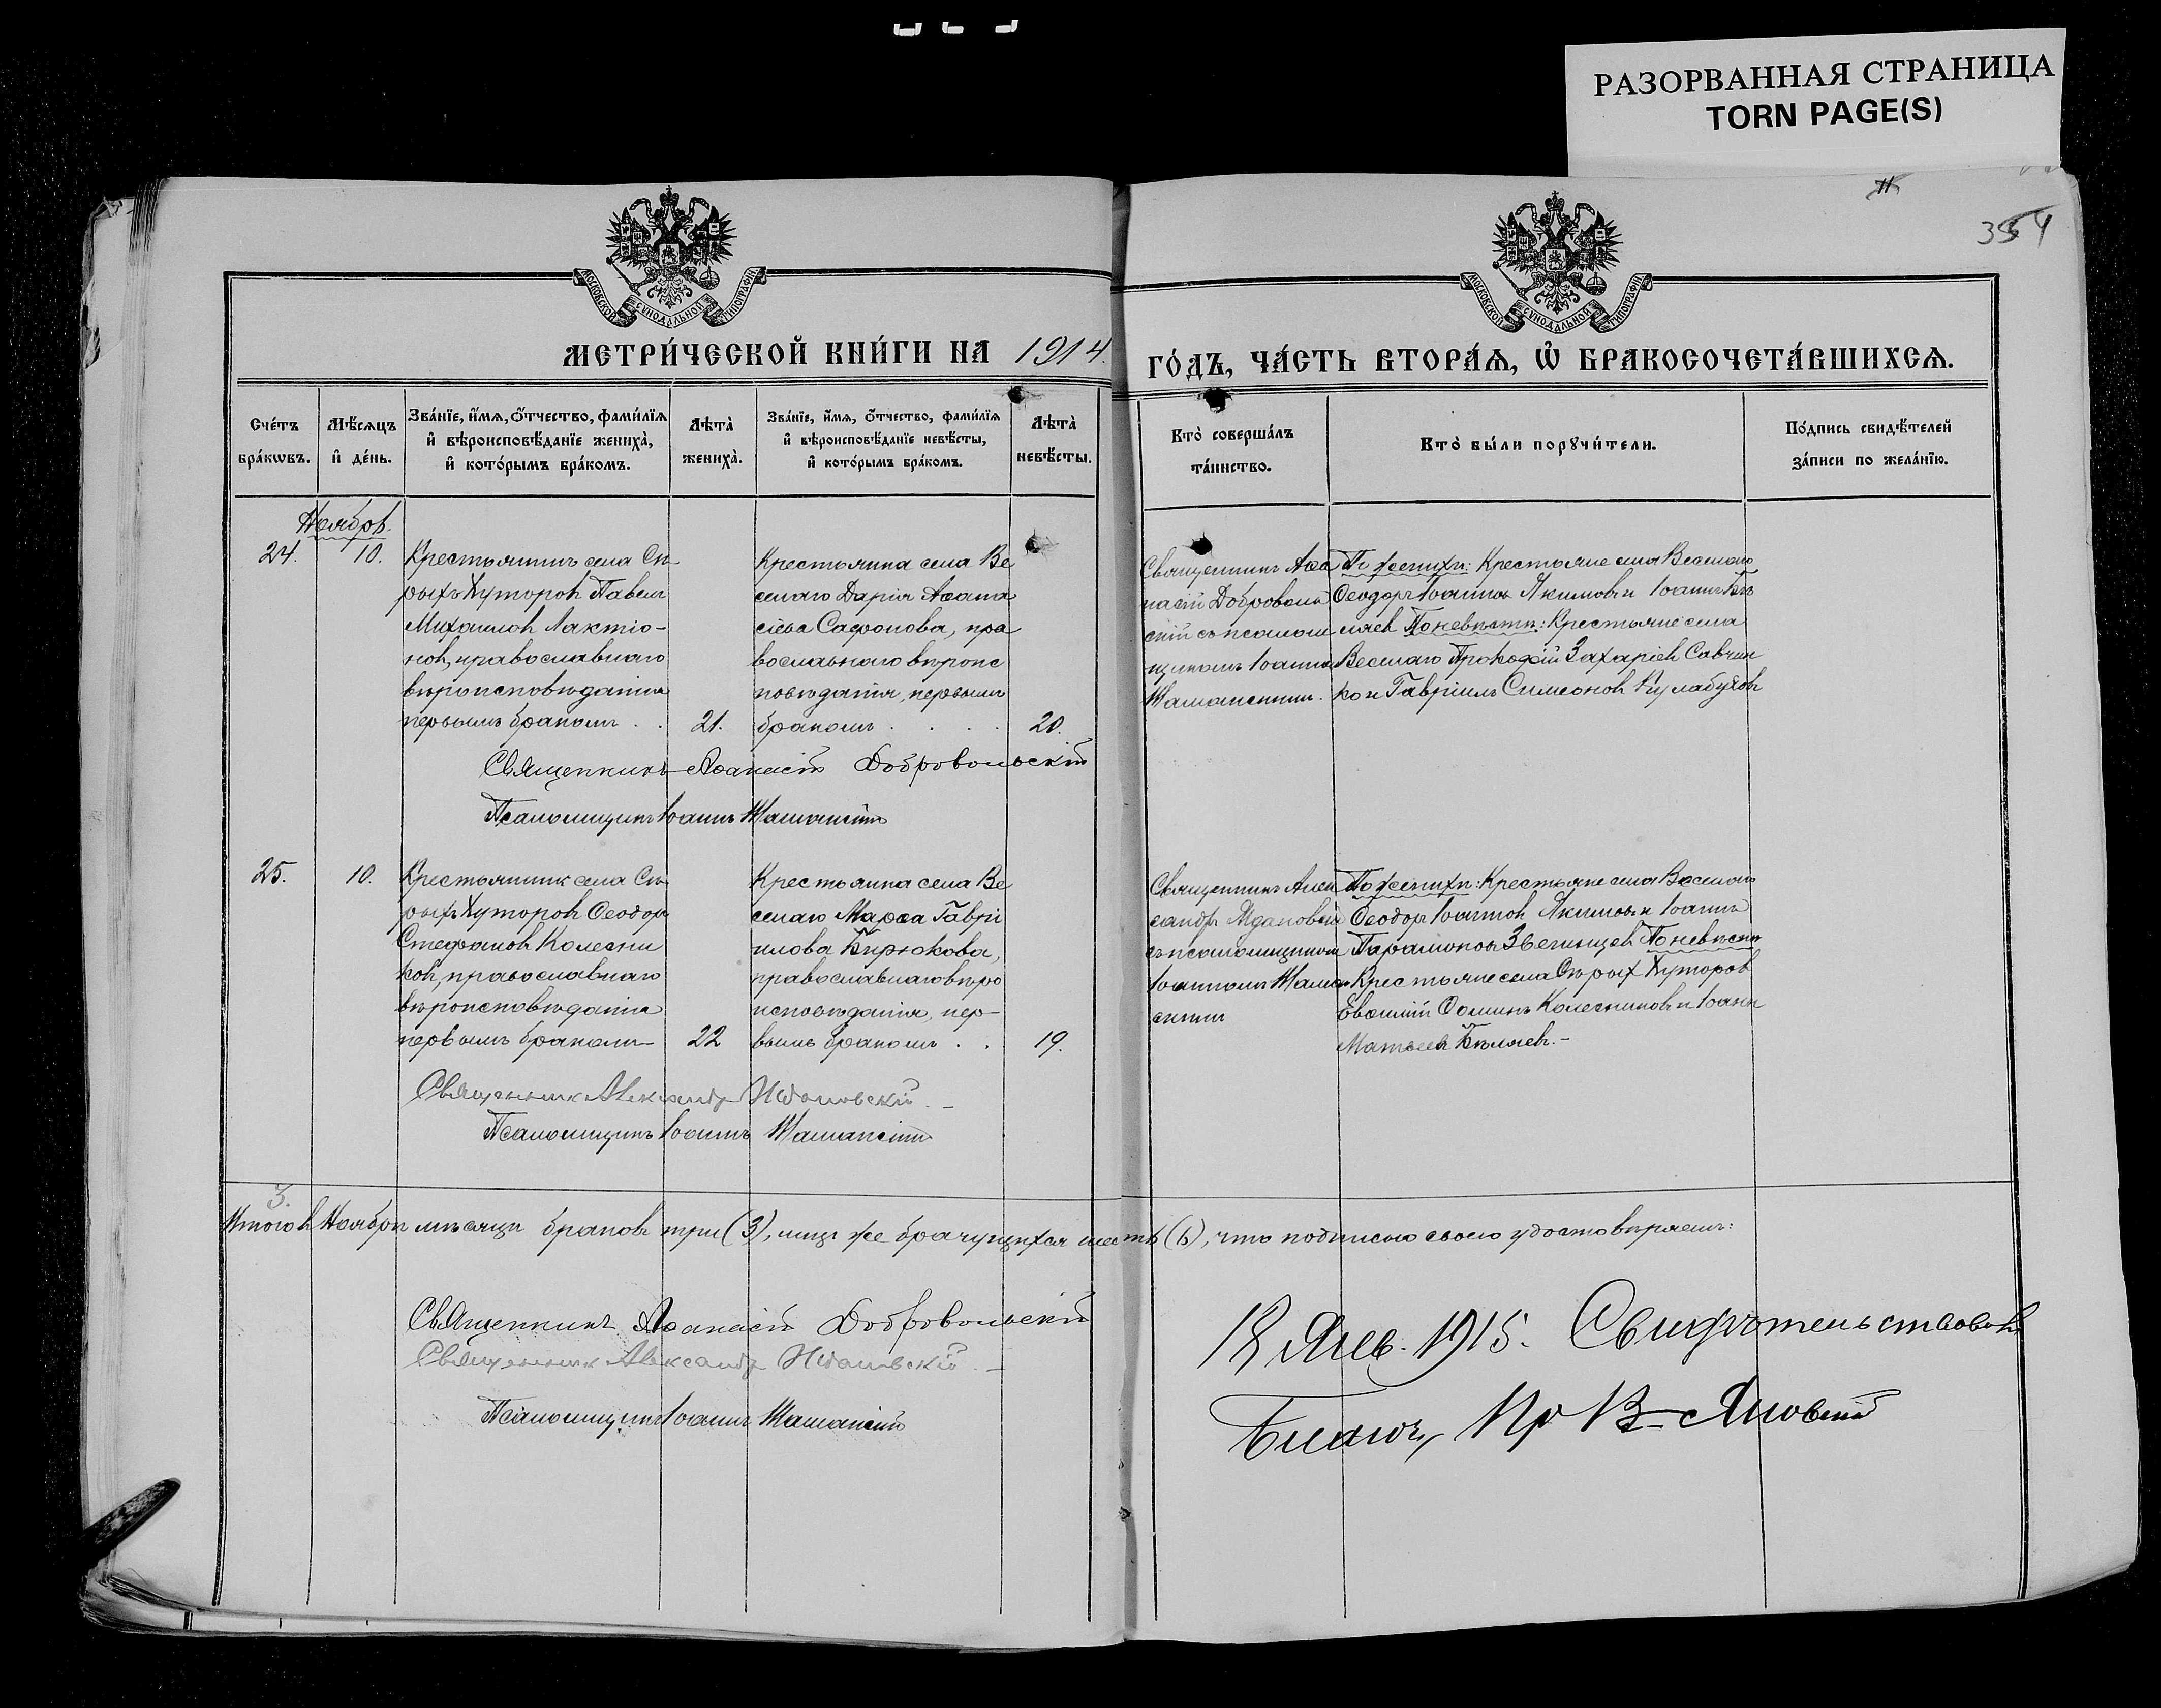 РАЗОРВАННАЯ СТРАНИЦА
TORN PAGE(S)
354
МОСКОВСКОЙ СѴНОДАЛЬНОЙ ТИПОГРАФІИ
МОСКОВСКОЙ СѴНОДАЛЬНОЙ ТИПОГРАФІИ
МЕТРИ́ЧЕСКОЙ КНИ́ГИ НА 1914.
ГО́ДЪ, ЧА́СТЬ ВТОРА́Ѧ, Ѡ҆ БРАКОСОЧЕТА́ВШИХСѦ.
Сче́тъ
бра́кѡвъ.
Мѣ́сѧцъ
и҆ де́нь.
Зва́нїе, и҆́мѧ, ѻ҆́тчество, фами́лїѧ
и҆ вѣроисповѣ́данїе жениха̀,
и҆ кото́рымъ бра́комъ.
Лѣта̀
жениха̀.
Зва́нїе, и҆́мѧ, ѻ҆́тчество, фами́лїѧ
и҆ вѣроисповѣ́данїе невѣ́сты,
и҆ кото́рымъ бра́комъ.
Лѣта̀
невѣ́сты.
Кто̀ соверша́лъ
та́инство.
Кто̀ бы́ли порꙋчи́тели.
По́дпись свидѣ́телей
за́писи по жела́нїю.
Ноябрь.
24. 10.
Крестьянинъ села Сѣ
рыхъ Хуторовъ Павелъ
Михаиловъ Лактіо-
новъ, православнаго
вѣроисповѣданія
первымъ бракомъ . . 21.
Крестьянка села Ве
селаго Дарія Аѳана
сіева Сафонова, пра
вославнаго вѣроис
повѣданія, первымъ
бракомъ . . . . 20.
Священникъ Аѳа
насій Доброволь
скій съ псаломщ
щикомъ Іоанно
Жаманскимъ.
По женихѣ: Крестьяне села Веселаго
Ѳеодоръ Іоанновъ Якимовъ и Іоаннъ
Поневѣстѣ: Крестьяне села
Веселаго Прокофій Захаріевъ Савчен
ко и Гавріилъ Симеоновъ Кулабуховъ
Священникъ Аѳанасій Добровольскій
Псаломщикъ Іоаннъ Жаманскій
25. 10.
Крестьянинъ села Сѣ
рыхъ Хуторовъ Ѳеодоръ
Стефановъ Колесни
ковъ, православнаго
вѣроисповѣданія
первымъ бракомъ 22
Крестьянка села Ве
селаго Марѳа Гаврі
илова Бирюкова,
православнаго вѣро
исповѣданія, пер-
вымъ бракомъ . . 19.
Священникъ Алек
сандръ Ждановскій
съ псаломщикомъ
Іоанномъ Жаман
скимъ
По женихѣ: Крестьяне села Веселаго
Ѳеодоръ Іоанновъ Якимовъ и Іоаннъ
Парамоновъ Звегинцевъ Поневѣстѣ
Крестьяне села Сѣрыхъ Хуторовъ
Евѳимій Ѳоминъ Колесниковъ и Іоаннъ
Матѳеевъ Бѣляевъ.-
Священникъ Александръ Ждановскій.-
Псаломщикъ Іоаннъ Жаманскій
3.
Итого въ Ноябрѣ мѣсяцѣ браковъ три (3), лицъ же брачущихся шесть (6), что подписью своею удостовѣряемъ:
Священникъ Аѳанасій Добровольскій
Священникъ Александръ Ждановскій.-
Псаломщикъ Іоаннъ Жаманскій
18 Янв. 1915. Свидѣтельствовалъ
Благоч. Пр В. Яновскій